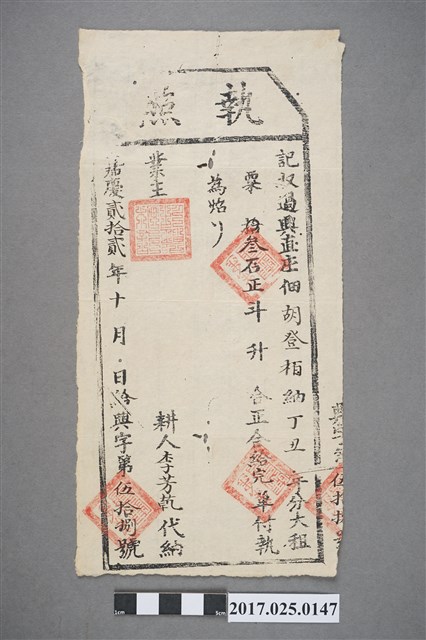 執照
記収過興直庄佃胡登栢納丁丑年分大租
粟拾叁石正斗升合正合給完單付執
為炤
耕人李芳乾代納
業主
嘉慶貳拾貳年十月·日給興字第伍拾捌號
伍拾捌號
1cm
5cm
2017.025.0147